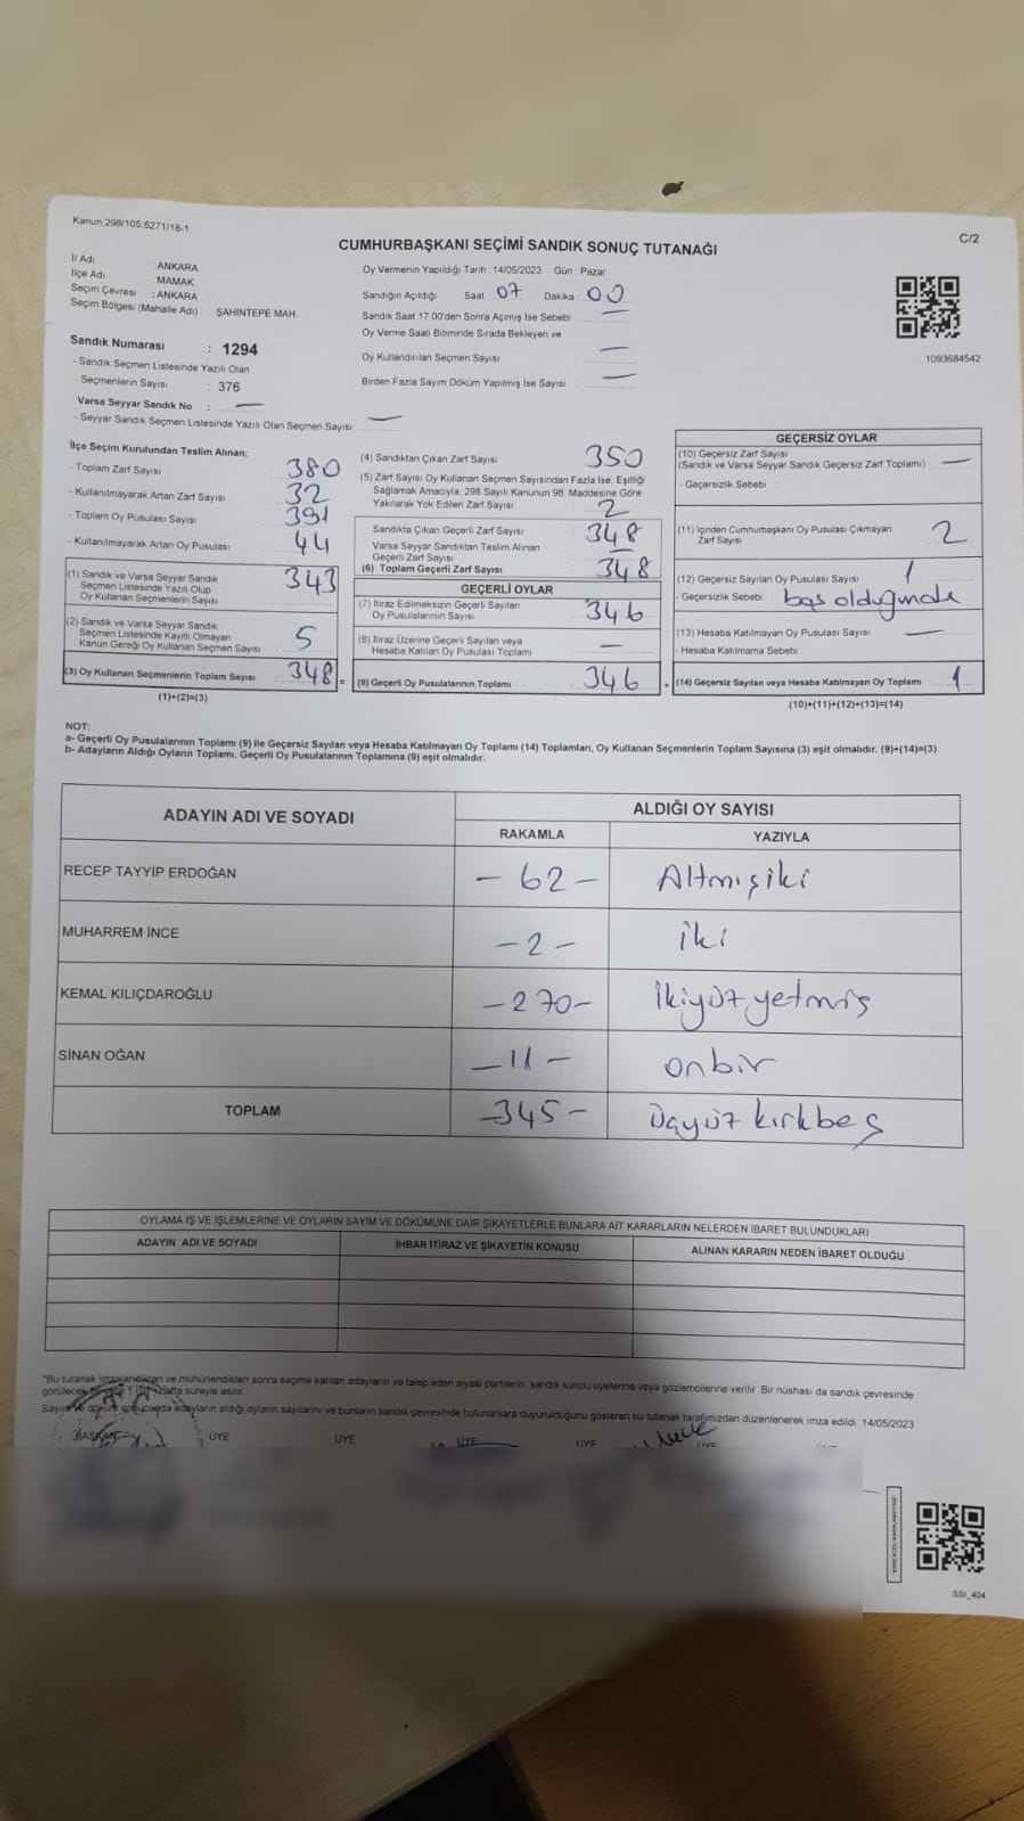 Kanun 298/105,6271/18-1
C/2
CUMHURBAŞKANI SEÇİMİ SANDIK SONUÇ TUTANAĞI
İl Adı ANKARA
İlçe Adı MAMAK
Seçim Çevresi : ANKARA
Seçim Bölgesi (Mahalle Adı) ŞAHİNTEPE MAH.
Sandık Numarası : 1294
- Sandık Seçmen Listesinde Yazılı Olan
Seçmenlerin Sayısı : 376
Varsa Seyyar Sandık No : —
- Seyyar Sandık Seçmen Listesinde Yazılı Olan Seçmen Sayısı —
Oy Vermenin Yapıldığı Tarih : 14/05/2023 Gün : Pazar
Sandığın Açıldığı Saat 07 Dakika 00
Sandık Saat 17:00'den Sonra Açılmış İse Sebebi —
Oy Verme Saati Bitiminde Sırada Bekleyen ve
Oy Kullandırılan Seçmen Sayısı —
Birden Fazla Sayım Döküm Yapılmış İse Sayısı —
1093684542
İlçe Seçim Kurulundan Teslim Alınan;
- Toplam Zarf Sayısı 380
- Kullanılmayarak Artan Zarf Sayısı 32
- Toplam Oy Pusulası Sayısı 391
- Kullanılmayarak Artan Oy Pusulası 44
(1) Sandık ve Varsa Seyyar Sandık
Seçmen Listesinde Yazılı Olup
Oy Kullanan Seçmenlerin Sayısı 343
(2) Sandık ve Varsa Seyyar Sandık
Seçmen Listesinde Kayıtlı Olmayan
Kanun Gereği Oy Kullanan Seçmen Sayısı 5
(3) Oy Kullanan Seçmenlerin Toplam Sayısı 348 =
(1)+(2)=(3)
(4) Sandıktan Çıkan Zarf Sayısı 350
(5) Zarf Sayısı Oy Kullanan Seçmen Sayısından Fazla İse, Eşitliği
Sağlamak Amacıyla; 298 Sayılı Kanunun 98. Maddesine Göre
Yakılarak Yok Edilen Zarf Sayısı 2
Sandıkta Çıkan Geçerli Zarf Sayısı 348
Varsa Seyyar Sandıktan Teslim Alınan
Geçerli Zarf Sayısı —
(6) Toplam Geçerli Zarf Sayısı 348
GEÇERLİ OYLAR
(7) İtiraz Edilmeksizin Geçerli Sayılan
Oy Pusulalarının Sayısı 346
(8) İtiraz Üzerine Geçerli Sayılan veya
Hesaba Katılan Oy Pusulası Toplamı —
(9) Geçerli Oy Pusulalarının Toplamı 346 +
GEÇERSİZ OYLAR
(10) Geçersiz Zarf Sayısı
(Sandık ve Varsa Seyyar Sandık Geçersiz Zarf Toplamı) —
- Geçersizlik Sebebi
(11) İçinden Cumhurbaşkanı Oy Pusulası Çıkmayan
Zarf Sayısı 2
(12) Geçersiz Sayılan Oy Pusulası Sayısı 1
- Geçersizlik Sebebi boş olduğundan
(13) Hesaba Katılmayan Oy Pusulası Sayısı —
- Hesaba Katılmama Sebebi
(14) Geçersiz Sayılan veya Hesaba Katılmayan Oy Toplamı 1
(10)+(11)+(12)+(13)=(14)
NOT:
a- Geçerli Oy Pusulalarının Toplamı (9) ile Geçersiz Sayılan veya Hesaba Katılmayan Oy Toplamı (14) Toplamları, Oy Kullanan Seçmenlerin Toplam Sayısına (3) eşit olmalıdır. (9)+(14)=(3)
b- Adayların Aldığı Oyların Toplamı, Geçerli Oy Pusulalarının Toplamına (9) eşit olmalıdır.
ADAYIN ADI VE SOYADI ALDIĞI OY SAYISI
RAKAMLA YAZIYLA
RECEP TAYYİP ERDOĞAN – 62 – Altmışiki
MUHARREM İNCE – 2 – iki
KEMAL KILIÇDAROĞLU – 270 – İkiyüzyetmiş
SİNAN OĞAN – 11 – onbir
TOPLAM – 345 – Üçyüzkırkbeş
OYLAMA İŞ VE İŞLEMLERİNE VE OYLARIN SAYIM VE DÖKÜMÜNE DAİR ŞİKAYETLERLE BUNLARA AİT KARARLARIN NELERDEN İBARET BULUNDUKLARI
ADAYIN ADI VE SOYADI İHBAR İTİRAZ VE ŞİKAYETİN KONUSU ALINAN KARARIN NEDEN İBARET OLDUĞU
"Bu tutanak imzalandıktan ve mühürlendikten sonra seçime katılan adayların ve talep eden siyasi partilerin, sandık kurulu üyelerine veya gözlemcilerine verilir. Bir nüshası da sandık çevresinde
görülecek hafta süreyle asılır.
adayların aldığı oyların sayılarını ve bunların sandık çevresinde bulunanlara duyurulduğunu gösteren bu tutanak tarafımızdan düzenlenerek imza edildi. 14/05/2023
BAŞKAN ÜYE ÜYE ÜYE ÜYE ÜYE
SSI_404